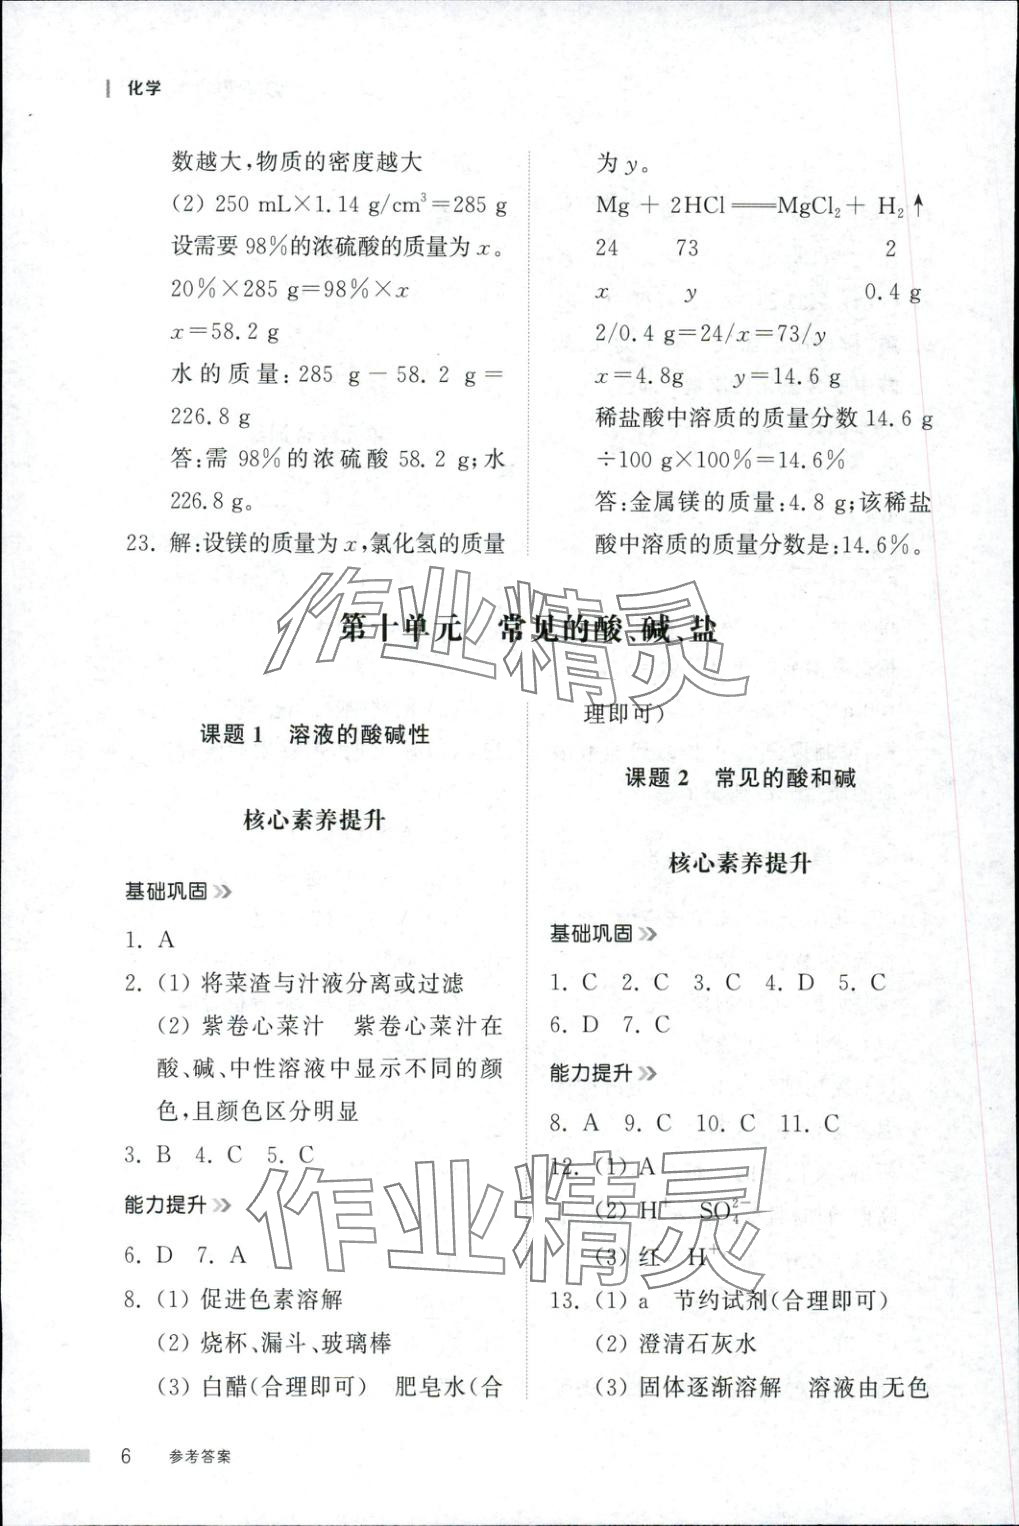 化学
数越大,物质的密度越大
(2) 250 mL×1.14 g/cm³=285 g
设需要98%的浓硫酸的质量为x。
20%×285 g=98%×x
x=58.2 g
水的质量:285 g-58.2 g=
226.8 g
答:需98%的浓硫酸58.2 g;水
226.8 g。
23. 解:设镁的质量为x,氯化氢的质量
为y。
Mg + 2HCl══MgCl₂+ H₂↑
24 73 2
x y 0.4 g
2/0.4 g=24/x=73/y
x=4.8g y=14.6 g
稀盐酸中溶质的质量分数14.6 g
÷100 g×100%=14.6%
答:金属镁的质量:4.8 g;该稀盐
酸中溶质的质量分数是:14.6%。
作业精灵
第十单元 常见的酸、碱、盐
课题1 溶液的酸碱性
核心素养提升
基础巩固
1. A
2. (1) 将菜渣与汁液分离或过滤
(2) 紫卷心菜汁 紫卷心菜汁在
酸、碱、中性溶液中显示不同的颜
色,且颜色区分明显
3. B 4. C 5. C
能力提升
6. D 7. A
8. (1) 促进色素溶解
(2) 烧杯、漏斗、玻璃棒
(3) 白醋(合理即可) 肥皂水(合
理即可)
课题2 常见的酸和碱
核心素养提升
基础巩固
1. C 2. C 3. C 4. D 5. C
6. D 7. C
能力提升
8. A 9. C 10. C 11. C
12. (1) A
(2) H⁺ SO₄²⁻
(3) 红 H⁺
13. (1) a 节约试剂(合理即可)
(2) 澄清石灰水
(3) 固体逐渐溶解 溶液由无色
作业精灵
6 参考答案